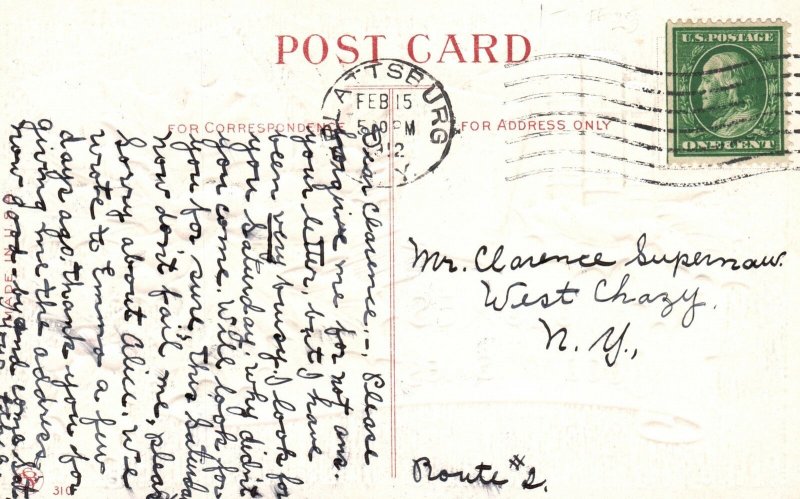 POST CARD
U.S. POSTAGE
ONE CENT
PLATTSBURG
FEB 15
5 30 PM
1912
N.Y.
FOR CORRESPONDENCE
FOR ADDRESS ONLY
Dear Clarence,-, Please
forgive me for not ans.
your letter, but I have
been very busy. I look for
you Saturday. why didn't
you come. Will look for
you for sure, this Saturda
now don't fail me, pleas
Sorry about Alice. We
wrote to Emma a few
days ago. thank you for
giving me the address.
now good-by and come Sat
Your
Mr. Clarence Supernaw.
West Chazy.
N.Y.,
Route #2.
MADE IN U.S.A
310